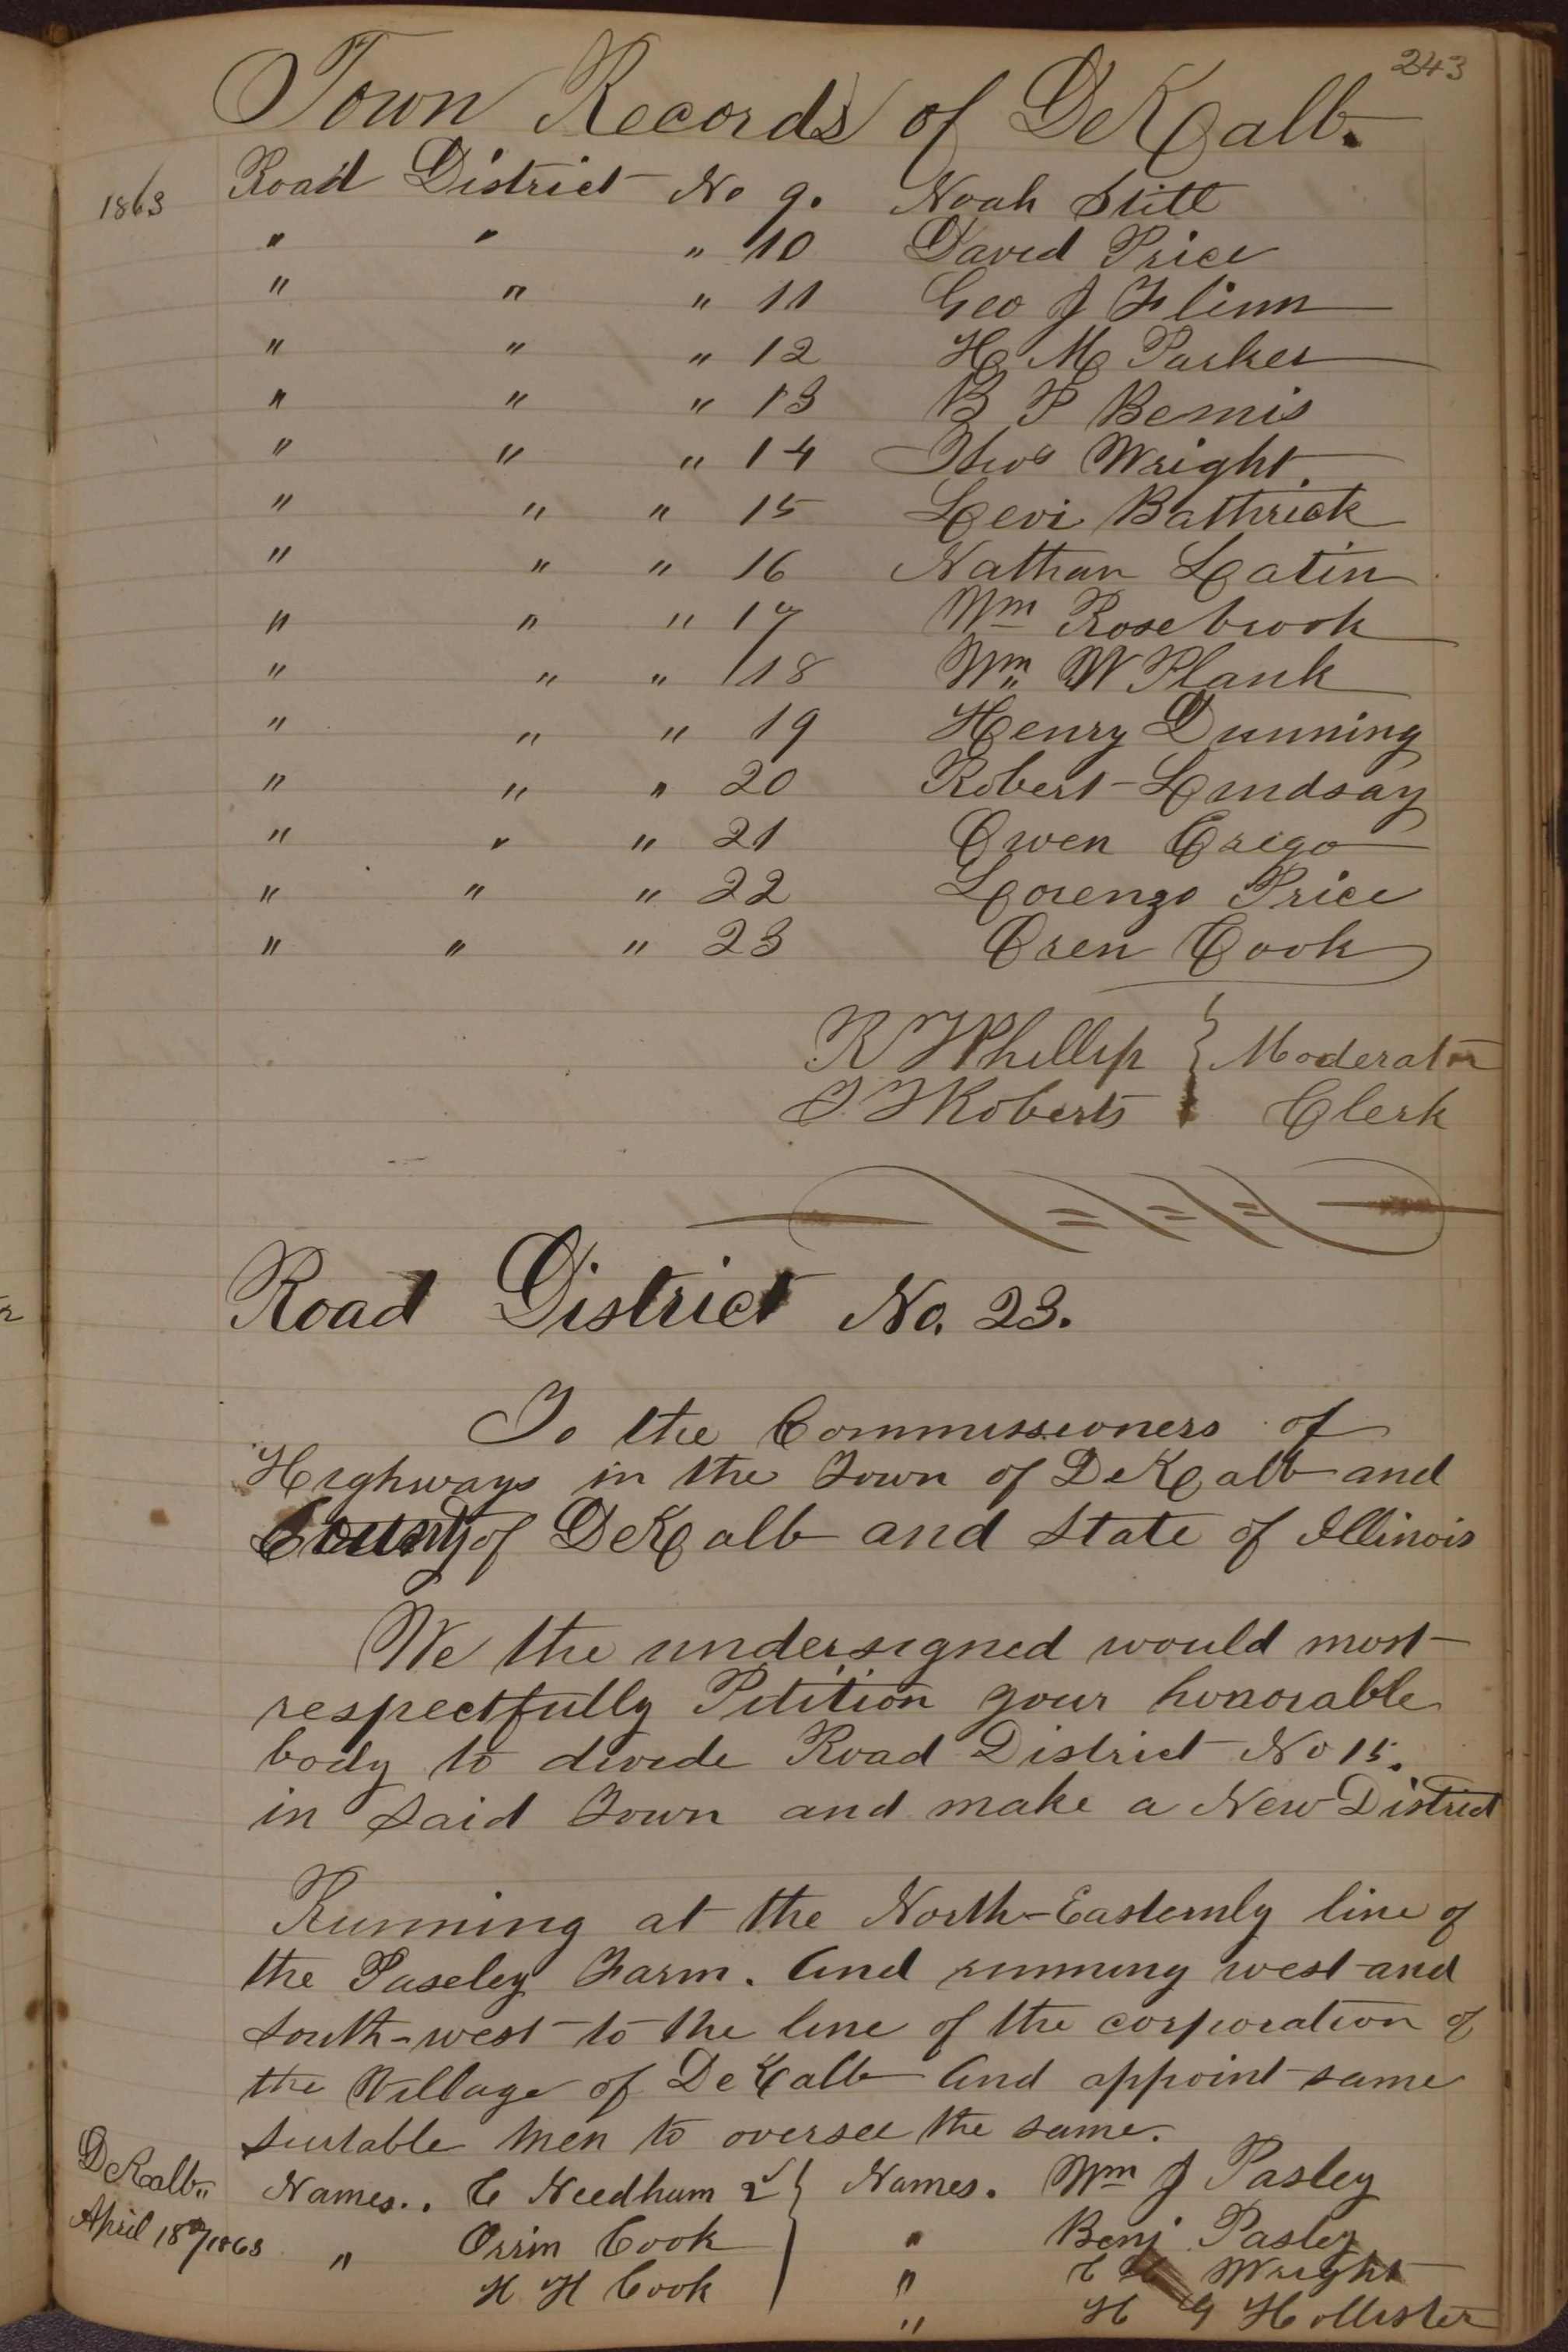 243
Town Records of DeKalb.
1863 Road District No 9. Noah Stitt
" " " 10 David Price
" " " 11 Geo J Flinn
" " " 12 H M Parker
" " " 13 B F Bemis
" " " 14 Thos Wright.
" " " 15 Levi Bathrick
" " " 16 Nathan Latin
" " " 17 Wm Rosebrook
" " " 18 Wm W Plank
" " " 19 Henry Dunning
" " " 20 Robert Lindsay
" " " 21 Owen Crego
" " " 22 Lorenzo Price
" " " 23 Oren Cook
R T Phillip } Moderator
T Roberts Clerk
Road District No. 23.
To the Commissioners of
Highways in the Town of DeKalb and
County of DeKalb and State of Illinois
We the undersigned would most
respectfully Petition your honorable
body to divide Road District No 15.
in Said Town and make a New District
Running at the North-Easternly line of
the Paseley Farm. And running west and
South-west to the line of the corporation of
the Village of DeKalb And appoint some
Suitable Men to oversee the same.
DeKalb,, Names.. C Needham 2 } Names. Wm J Pasley
April 18th/1863 " Orrin Cook " Benj Pasley
H H Cook " Wright
" H G Hollister